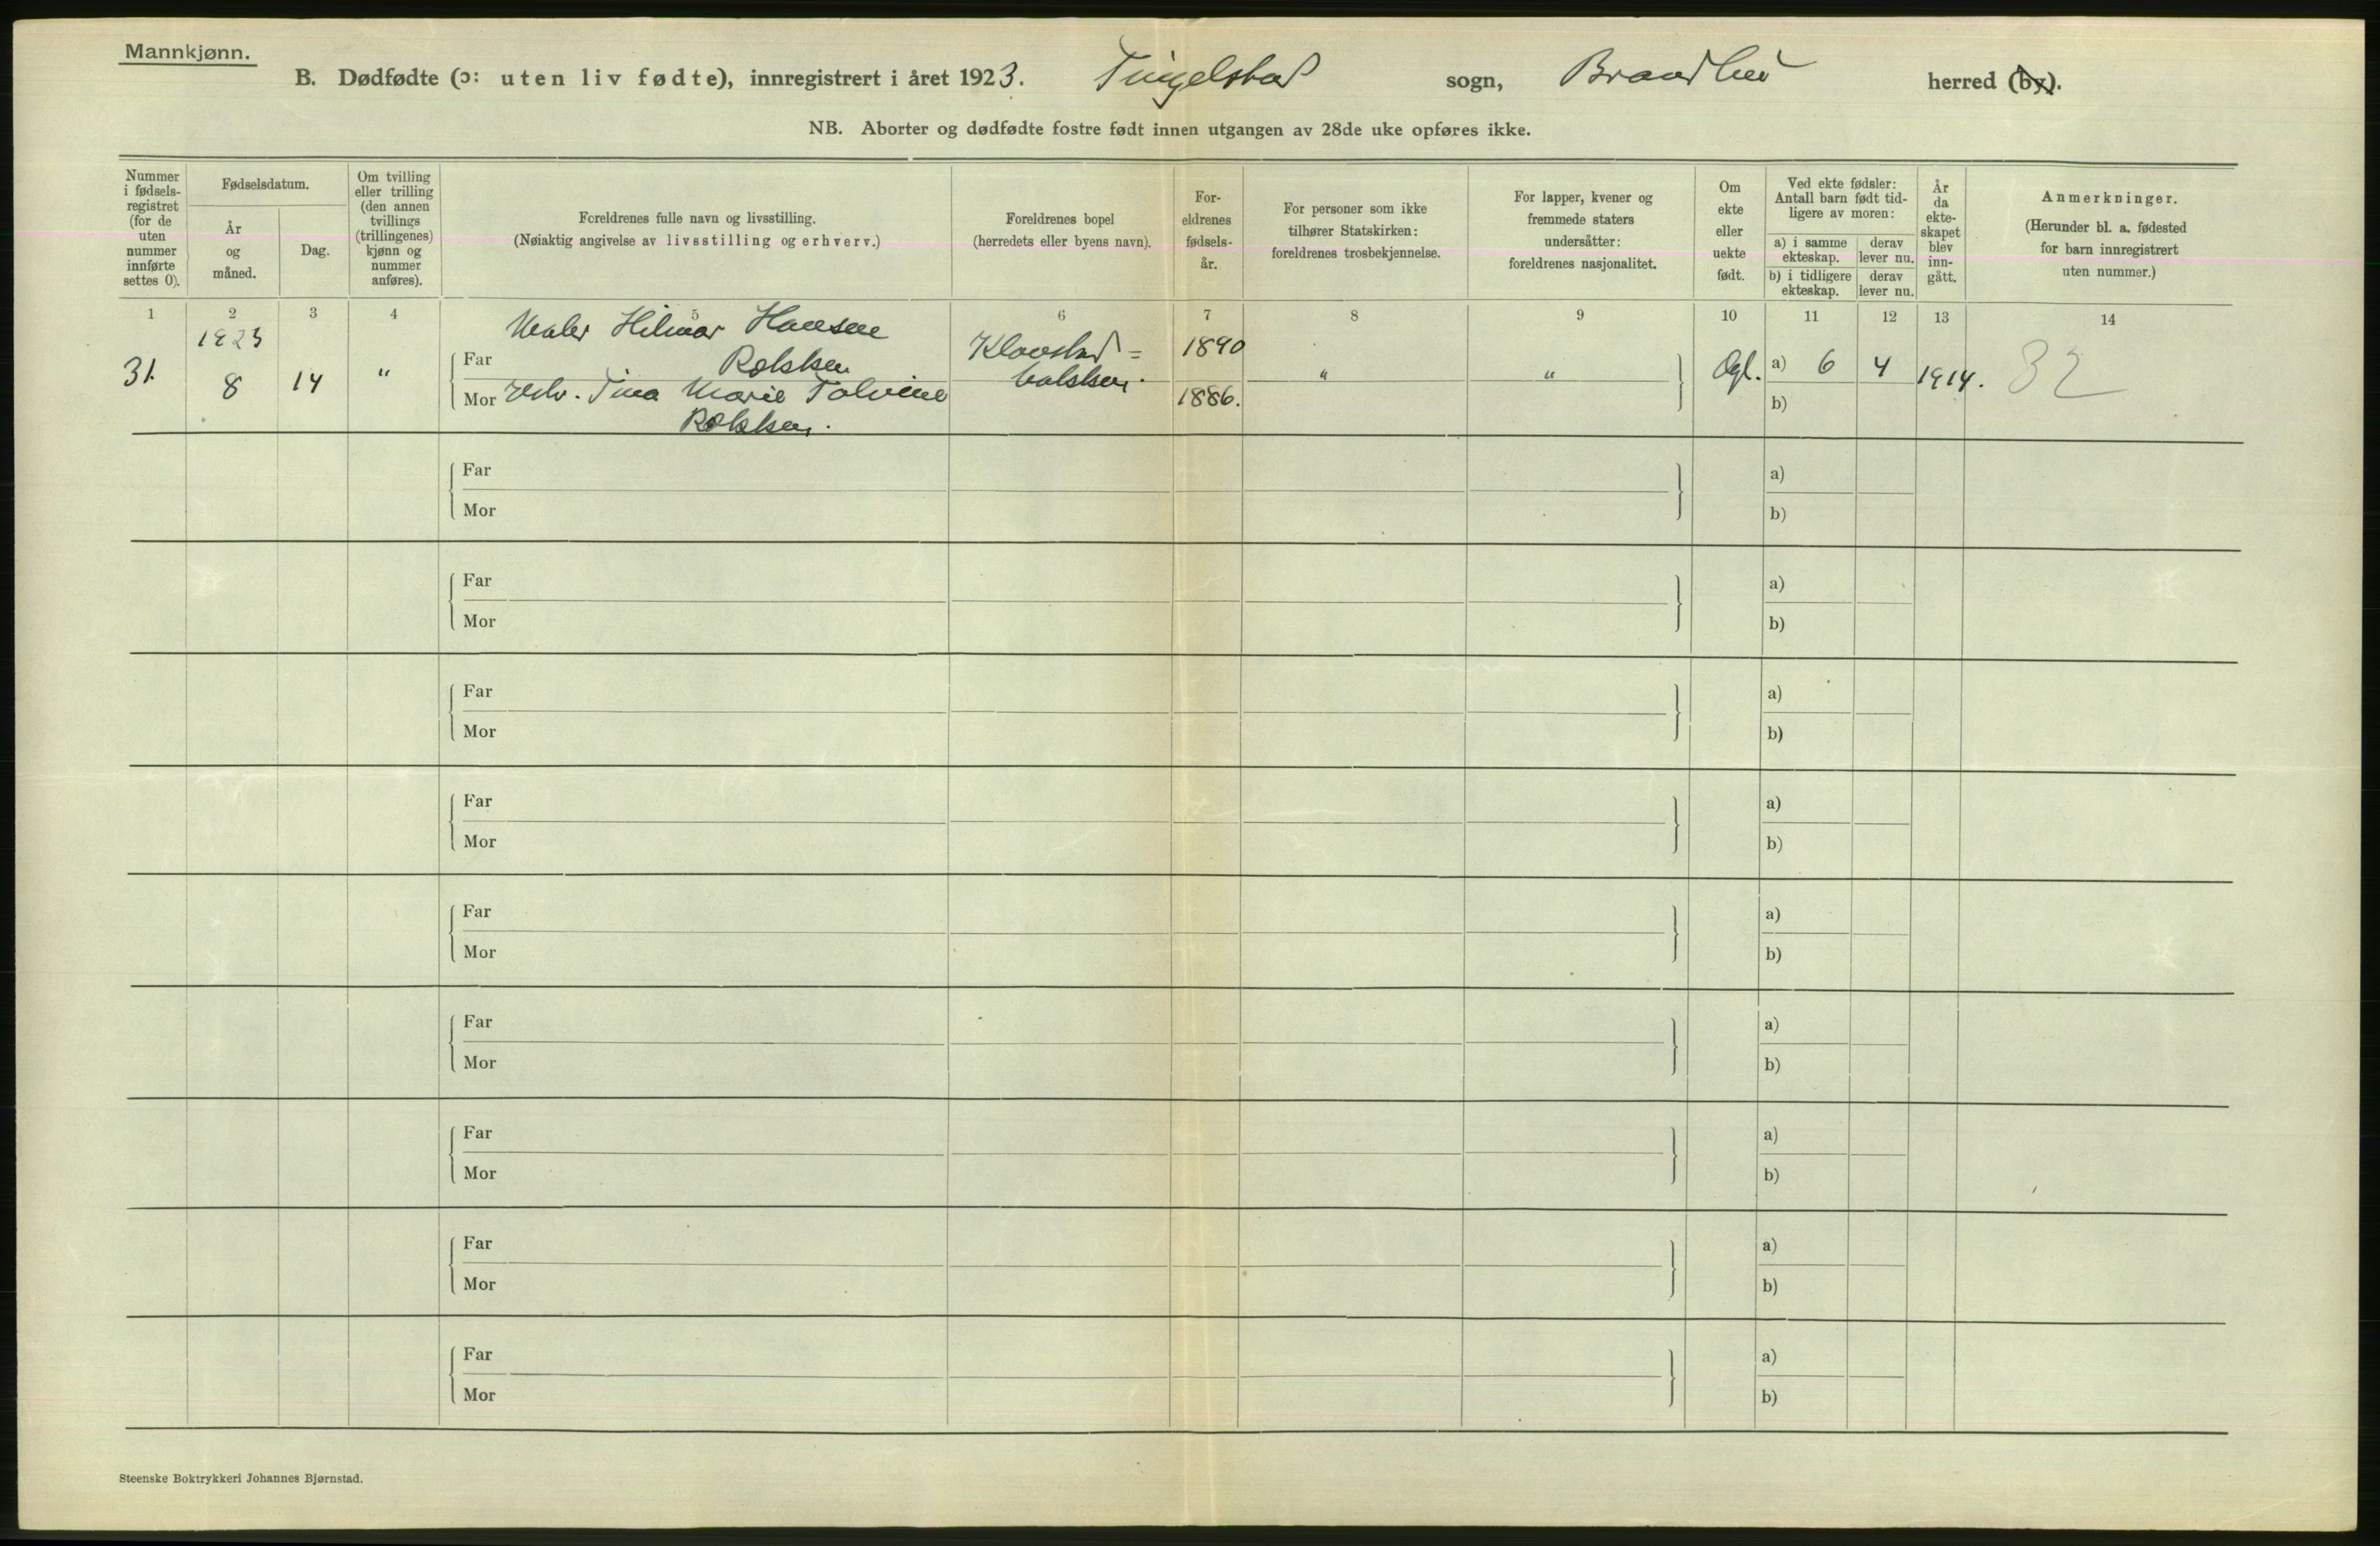 Mannkjønn.
B. Dødfødte (ɔ: uten liv fødte), innregistrert i året 1923. Tingelstad sogn, Brandbu herred (by).
NB. Aborter og dødfødte fostre født innen utgangen av 28de uke opføres ikke.
Nummer
i fødsels-
registret
(for de
uten
nummer
innførte
settes 0).
Fødselsdatum.
År
og
måned.
Dag.
Om tvilling
eller trilling
(den annen
tvillings
(trillingenes)
kjønn og
nummer
anføres).
Foreldrenes fulle navn og livsstilling.
(Nøiaktig angivelse av livsstilling og erhverv.)
Foreldrenes bopel
(herredets eller byens navn).
For-
eldrenes
fødsels-
år.
For personer som ikke
tilhører Statskirken:
foreldrenes trosbekjennelse.
For lapper, kvener og
fremmede staters
undersåtter:
foreldrenes nasjonalitet.
Om
ekte
eller
uekte
født.
Ved ekte fødsler:
Antall barn født tid-
ligere av moren:
a) i samme
ekteskap.
derav
lever nu.
b) i tidligere
ekteskap.
derav
lever nu.
År
da
ekte-
skapet
blev
inn-
gått.
Anmerkninger.
(Herunder bl. a. fødested
for barn innregistrert
uten nummer.)
1 2 3 4 5 6 7 8 9 10 11 12 13 14
31. 1923 8 14 "
Maler Hilmar Hansen
Far
Mor Tina Marie
1890
1886.
" " Ogl. a) 6 4 1914. 32
b)
Far a)
Mor b)
Far a)
Mor b)
Far a)
Mor b)
Far a)
Mor b)
Far a)
Mor b)
Far a)
Mor b)
Far a)
Mor b)
Far a)
Mor b)
Far a)
Mor b)
Steenske Boktrykkeri Johannes Bjørnstad.